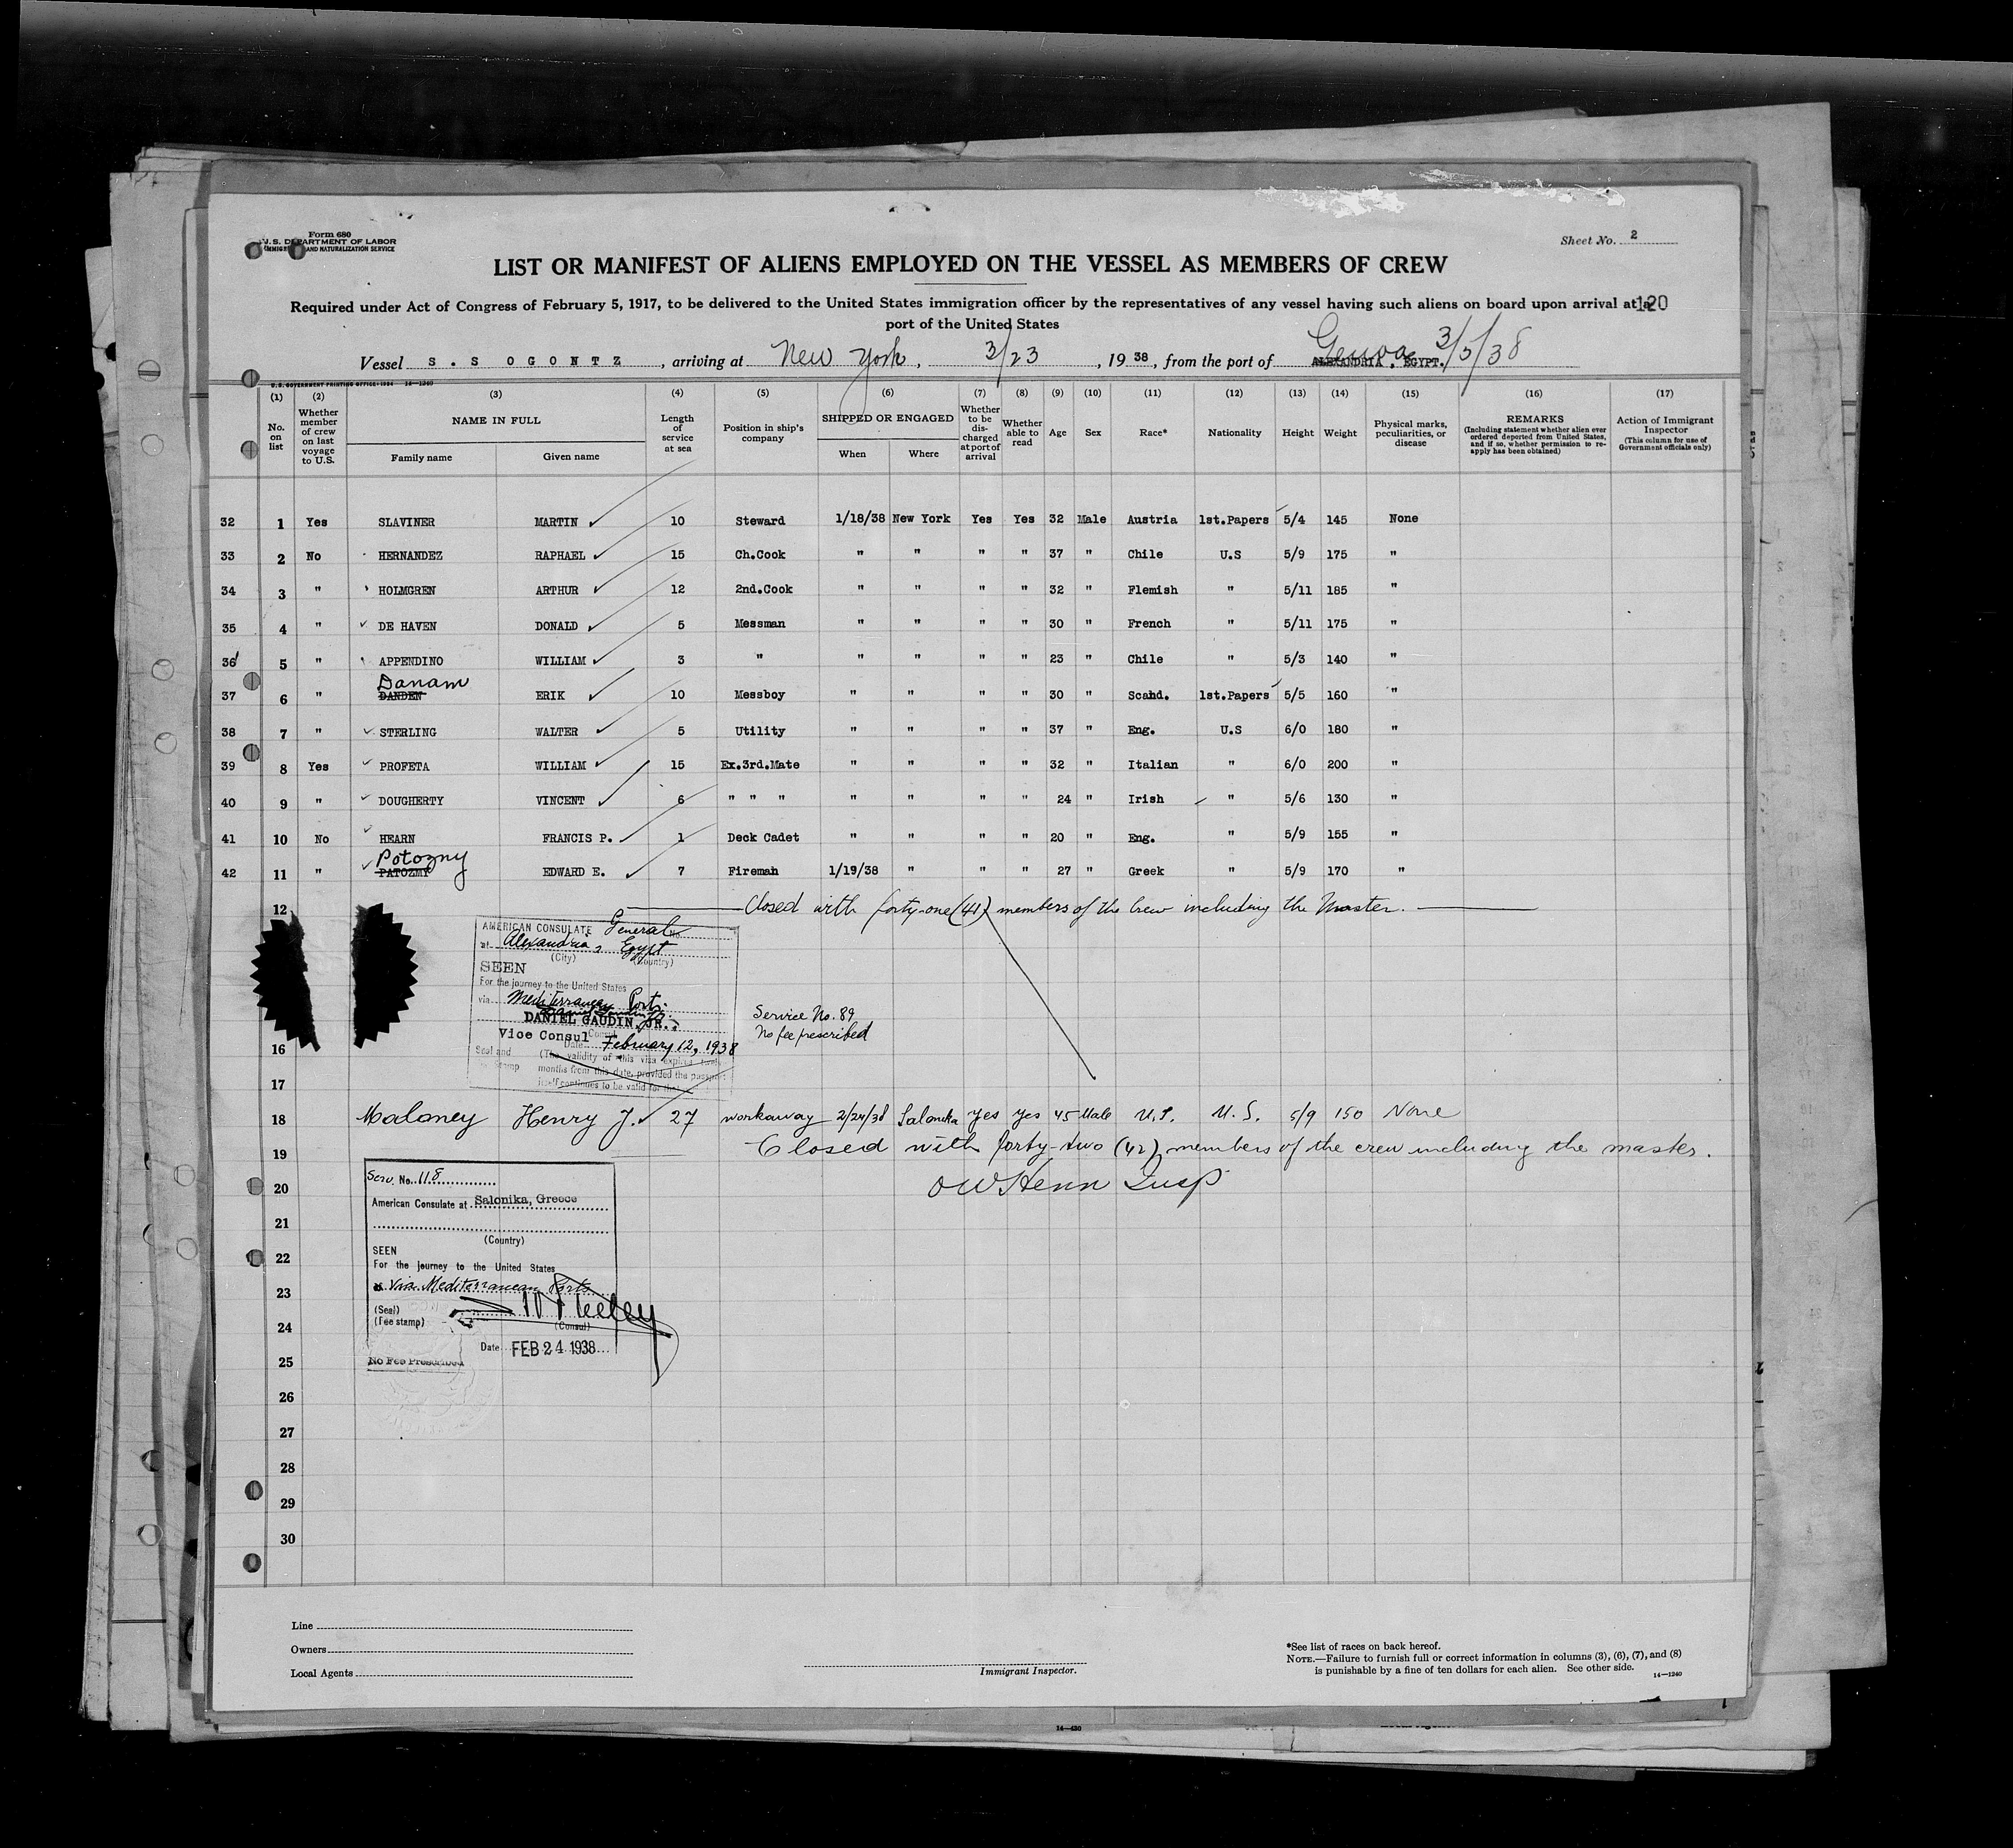 Form 680
U.S. DEPARTMENT OF LABOR
AND NATURALIZATION SERVICE
Sheet No. 2
LIST OR MANIFEST OF ALIENS EMPLOYED ON THE VESSEL AS MEMBERS OF CREW
Required under Act of Congress of February 5, 1917, to be delivered to the United States immigration officer by the representatives of any vessel having such aliens on board upon arrival at a 120
port of the United States
Vessel S.S OGONTZ, arriving at New York, 3/23, 1938, from the port of ALEXANDRIA, EGYPT. Genoa 3/5/38
U.S. GOVERNMENT PRINTING OFFICE: 1934 14—1240
(1) (2) (3) (4) (5) (6) (7) (8) (9) (10) (11) (12) (13) (14) (15) (16) (17)
No. on list
Whether member of crew on last voyage to U.S.
NAME IN FULL
Family name Given name
Length of service at sea
Position in ship's company
SHIPPED OR ENGAGED
When Where
Whether to be discharged at port of arrival
Whether able to read
Age
Sex
Race*
Nationality
Height
Weight
Physical marks, peculiarities, or disease
REMARKS
(Including statement whether alien ever ordered deported from United States, and if so, whether permission to reapply has been obtained)
Action of Immigrant Inspector
(This column for use of Government officials only)
32 1 Yes SLAVINER MARTIN 10 Steward 1/18/38 New York Yes Yes 32 Male Austria 1st.Papers 5/4 145 None
33 2 No HERNANDEZ RAPHAEL 15 Ch.Cook " " " " 37 " Chile U.S 5/9 175 "
34 3 " HOLMGREN ARTHUR 12 2nd.Cook " " " " 32 " Flemish " 5/11 185 "
35 4 " DE HAVEN DONALD 5 Messman " " " " 30 " French " 5/11 175 "
36 5 " APPENDINO WILLIAM 3 " " " " " 23 " Chile " 5/3 140 "
Danam
37 6 " DANDEN ERIK 10 Messboy " " " " 30 " Scand. 1st.Papers 5/5 160 "
38 7 " STERLING WALTER 5 Utility " " " " 37 " Eng. U.S 6/0 180 "
39 8 Yes PROFETA WILLIAM 15 Ex.3rd.Mate " " " " 32 " Italian " 6/0 200 "
40 9 " DOUGHERTY VINCENT 6 " " " " " " " 24 " Irish " 5/6 130 "
41 10 No HEARN FRANCIS P. 1 Deck Cadet " " " " 20 " Eng. " 5/9 155 "
Potozny
42 11 " PATOZMY EDWARD E. 7 Fireman 1/19/38 " " " 27 " Greek " 5/9 170 "
12 Closed with forty-one (41) members of the Crew including the Master.
AMERICAN CONSULATE General
at Alexandria, Egypt
(City) (Country)
SEEN
For the journey to the United States
via Mediterranean Ports.
DANIEL GAUDIN, JR.
Vice Consul
Date February 12, 1938
Seal and Stamp
(The validity of this visa expires twelve
months from this date, provided the passport
itself continues to be valid for that
Service No. 89
No fee prescribed
16
17
18 Maloney Henry J. 27 workaway 2/24/38 Salonika Yes Yes 45 Male U.S. U.S. 5/9 150 None
19 Closed with forty-two (42) members of the crew including the master.
OW Henn Insp
Serv. No. 118
American Consulate at Salonika, Greece
(Country)
SEEN
For the journey to the United States
Via Mediterranean Ports
(Seal)
(Fee stamp)
(Consul)
Date FEB 24 1938
No Fee Prescribed
20
21
22
23
24
25
26
27
28
29
30
Line
Owners
Local Agents
Immigrant Inspector.
*See list of races on back hereof.
NOTE.—Failure to furnish full or correct information in columns (3), (6), (7), and (8)
is punishable by a fine of ten dollars for each alien. See other side.
14—1240
14—430